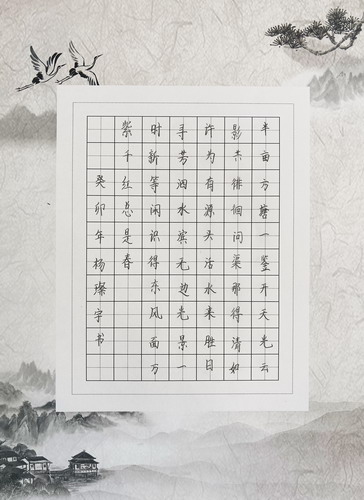 半亩方塘一鉴开天光云
影共徘徊问渠那得清如
许为有源头活水来胜日
寻芳泗水滨无边光景一
时新等闲识得东风面万
紫千红总是春
癸卯年杨璨宇书